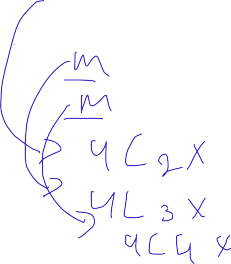 m
m
4C2x
4C3x
4C4x